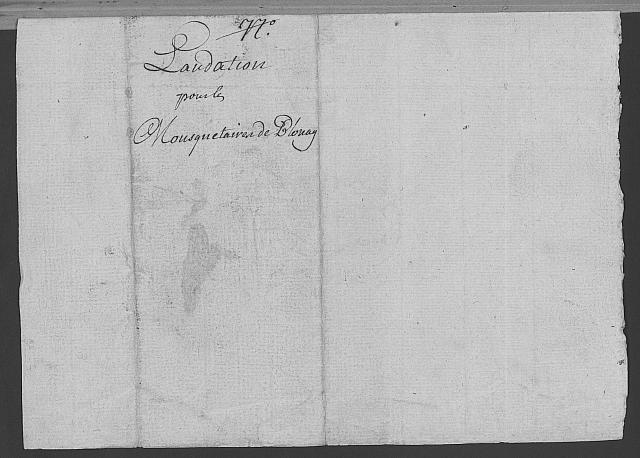 N.o
Laudation
pour les
Mousquetaires de Plouay